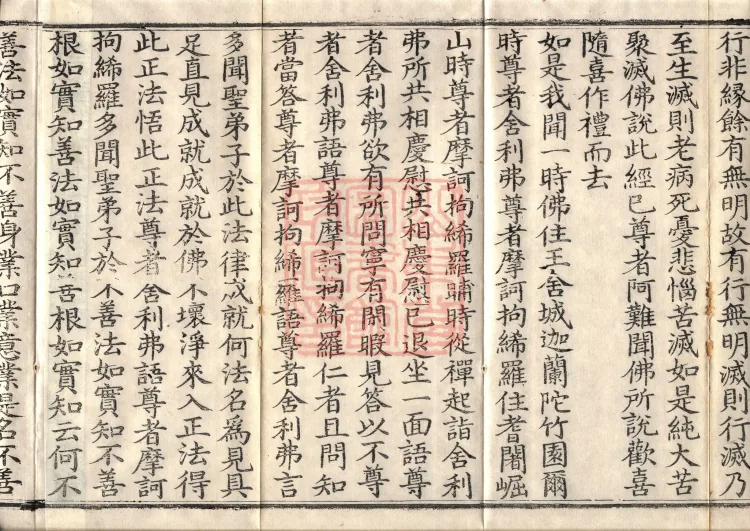 行非緣餘有無明故有行無明滅則行滅乃
至生滅則老病死憂悲惱苦滅如是純大苦
聚滅佛說此經已尊者阿難聞佛所說歡喜
隨喜作禮而去
如是我聞一時佛住王舍城迦蘭陀竹園爾
時尊者舍利弗尊者摩訶拘絺羅住耆闍崛
山時尊者摩訶拘絺羅晡時從禪起詣舍利
弗所共相慶慰共相慶慰已退坐一面語尊
者舍利弗欲有所問寧有閑暇見答以不尊
者舍利弗語尊者摩訶拘絺羅仁者且問知
者當答尊者摩訶拘絺羅語尊者舍利弗言
多聞聖弟子於此法律成就何法名為見具
足直見成就成就於佛不壞淨來入正法得
此正法悟此正法尊者舍利弗語尊者摩訶
拘絺羅多聞聖弟子於不善法如實知不善
根如實知善法如實知善根如實知云何不
善法如實知不善身業口業意業是名不善